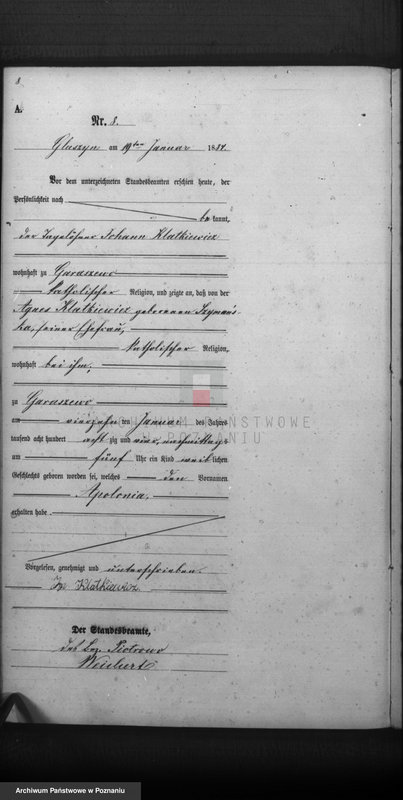 8.
A.
Nr. 8.
Gluszyn am 19ten Januar 1884.
Vor dem unterzeichneten Standesbeamten erschien heute, der
Persönlichkeit nach
bekannt,
der Tagelöhner Johann Klatkiewicz
wohnhaft zu Garaszewo
katholischer Religion, und zeigte an, daß von der
Agnes Klatkiewicz geborenen Szymans-
ka, seiner Ehefrau,
katholischer Religion,
wohnhaft bei ihm,
zu Garaszewo
am vierzehn ten Januar des Jahres
tausend acht hundert acht zig und vier, nachmittags
um fünf Uhr ein Kind weiblichen
Geschlechts geboren worden sei, welches den Vornamen
Apolonia,
erhalten habe
Vorgelesen, genehmigt und unterschrieben.
Klatkiewicz
Der Standesbeamte,
des Bez. Piotrowo
ARCHIWUM PAŃSTWOWE
W POZNANIU
Archiwum Państwowe w Poznaniu